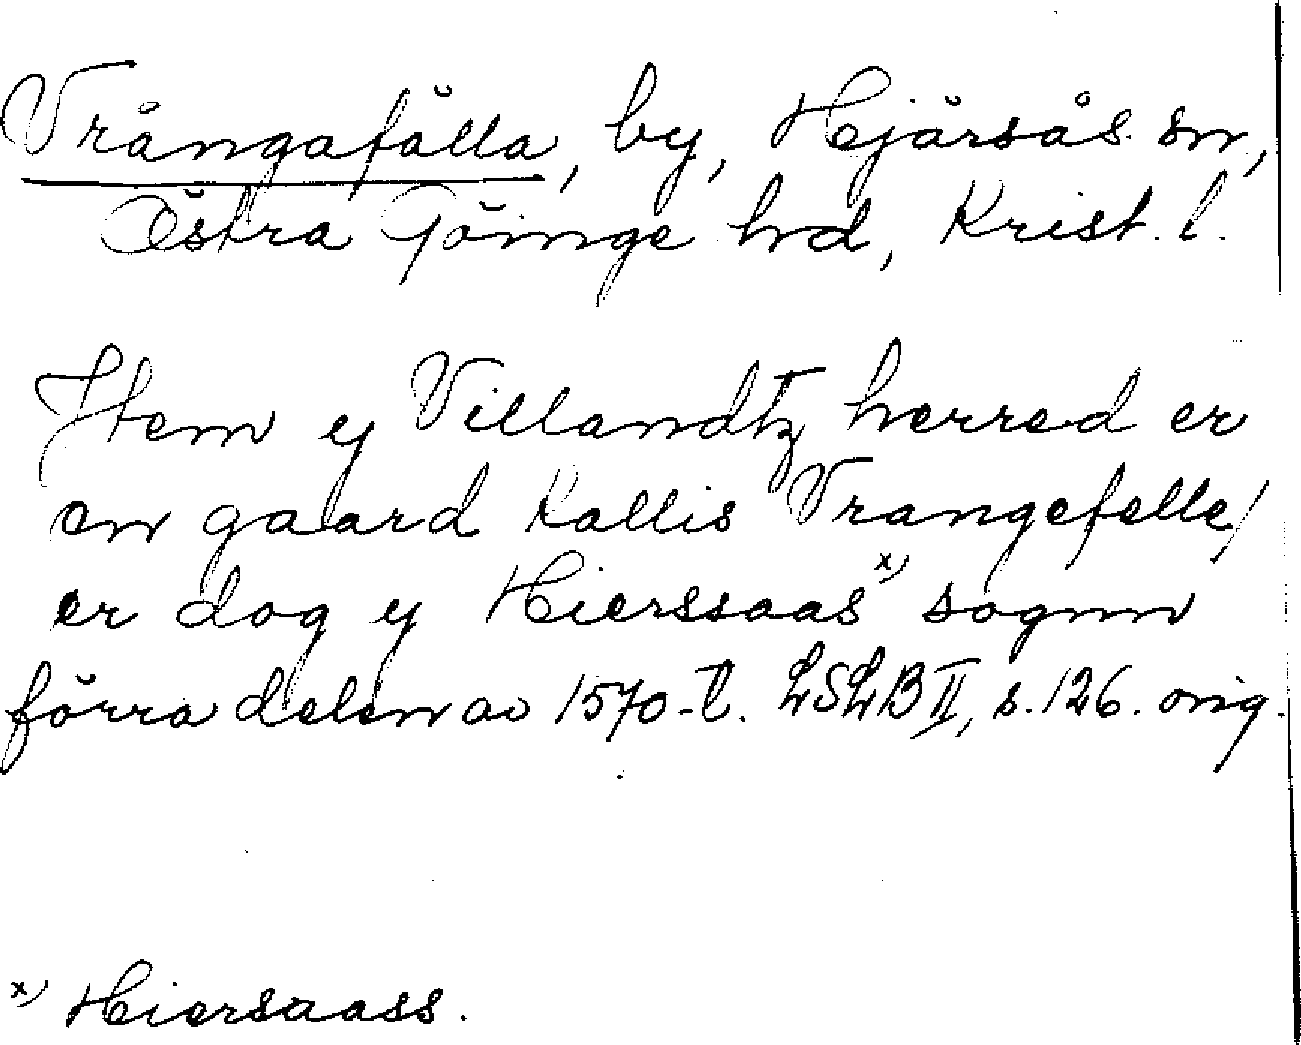 Vrångafälla, by, Hjärsås sn,
Östra Göinge hd, Krist. l.
Item y Villandtz herred er
en gaard kallis Vrangefelle/
er dog y Hierssaas x) sognn
förra delen av 1570-t. LSLB II, s. 126. orig.
x) Hiersaass.